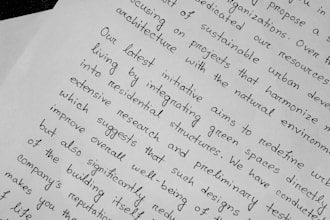 propose a s
organizations. Over t
dedicated our resources
rt of sustainable urban deve
ocusing on projects that harmonize
architecture with the natural environm
Our latest initiative aims to redefine urb
living by integrating green spaces directly
into residential structures. We have conducte
extensive research and preliminary test
which suggests that such designs
improve overall well-being of
but also significantly redu
of the building itself
company's reputation
makes you the
of life